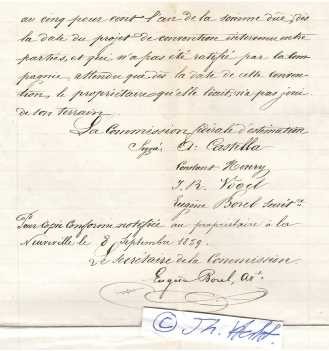 au cinq pour cent l'an de la somme due, dès
la date du projet de convention intervenu entre
parties, et qui n'a pas été ratifié par la Com-
pagnie, attendu que dès la date de cette conven-
tion, le propriétaire qu'elle liait, n'a pas joui
de son terrain.
La Commission fédérale d'estimation
Signé Ed: Castella
Constant Henry
J. R. Vogel
Eugène Borel
Pour Copie Conforme notifiée au propriétaire à la
Neuveville le 8 Septembre 1859.
Le Secrétaire de la Commission
Eugène Borel, av.
(C) J. H.